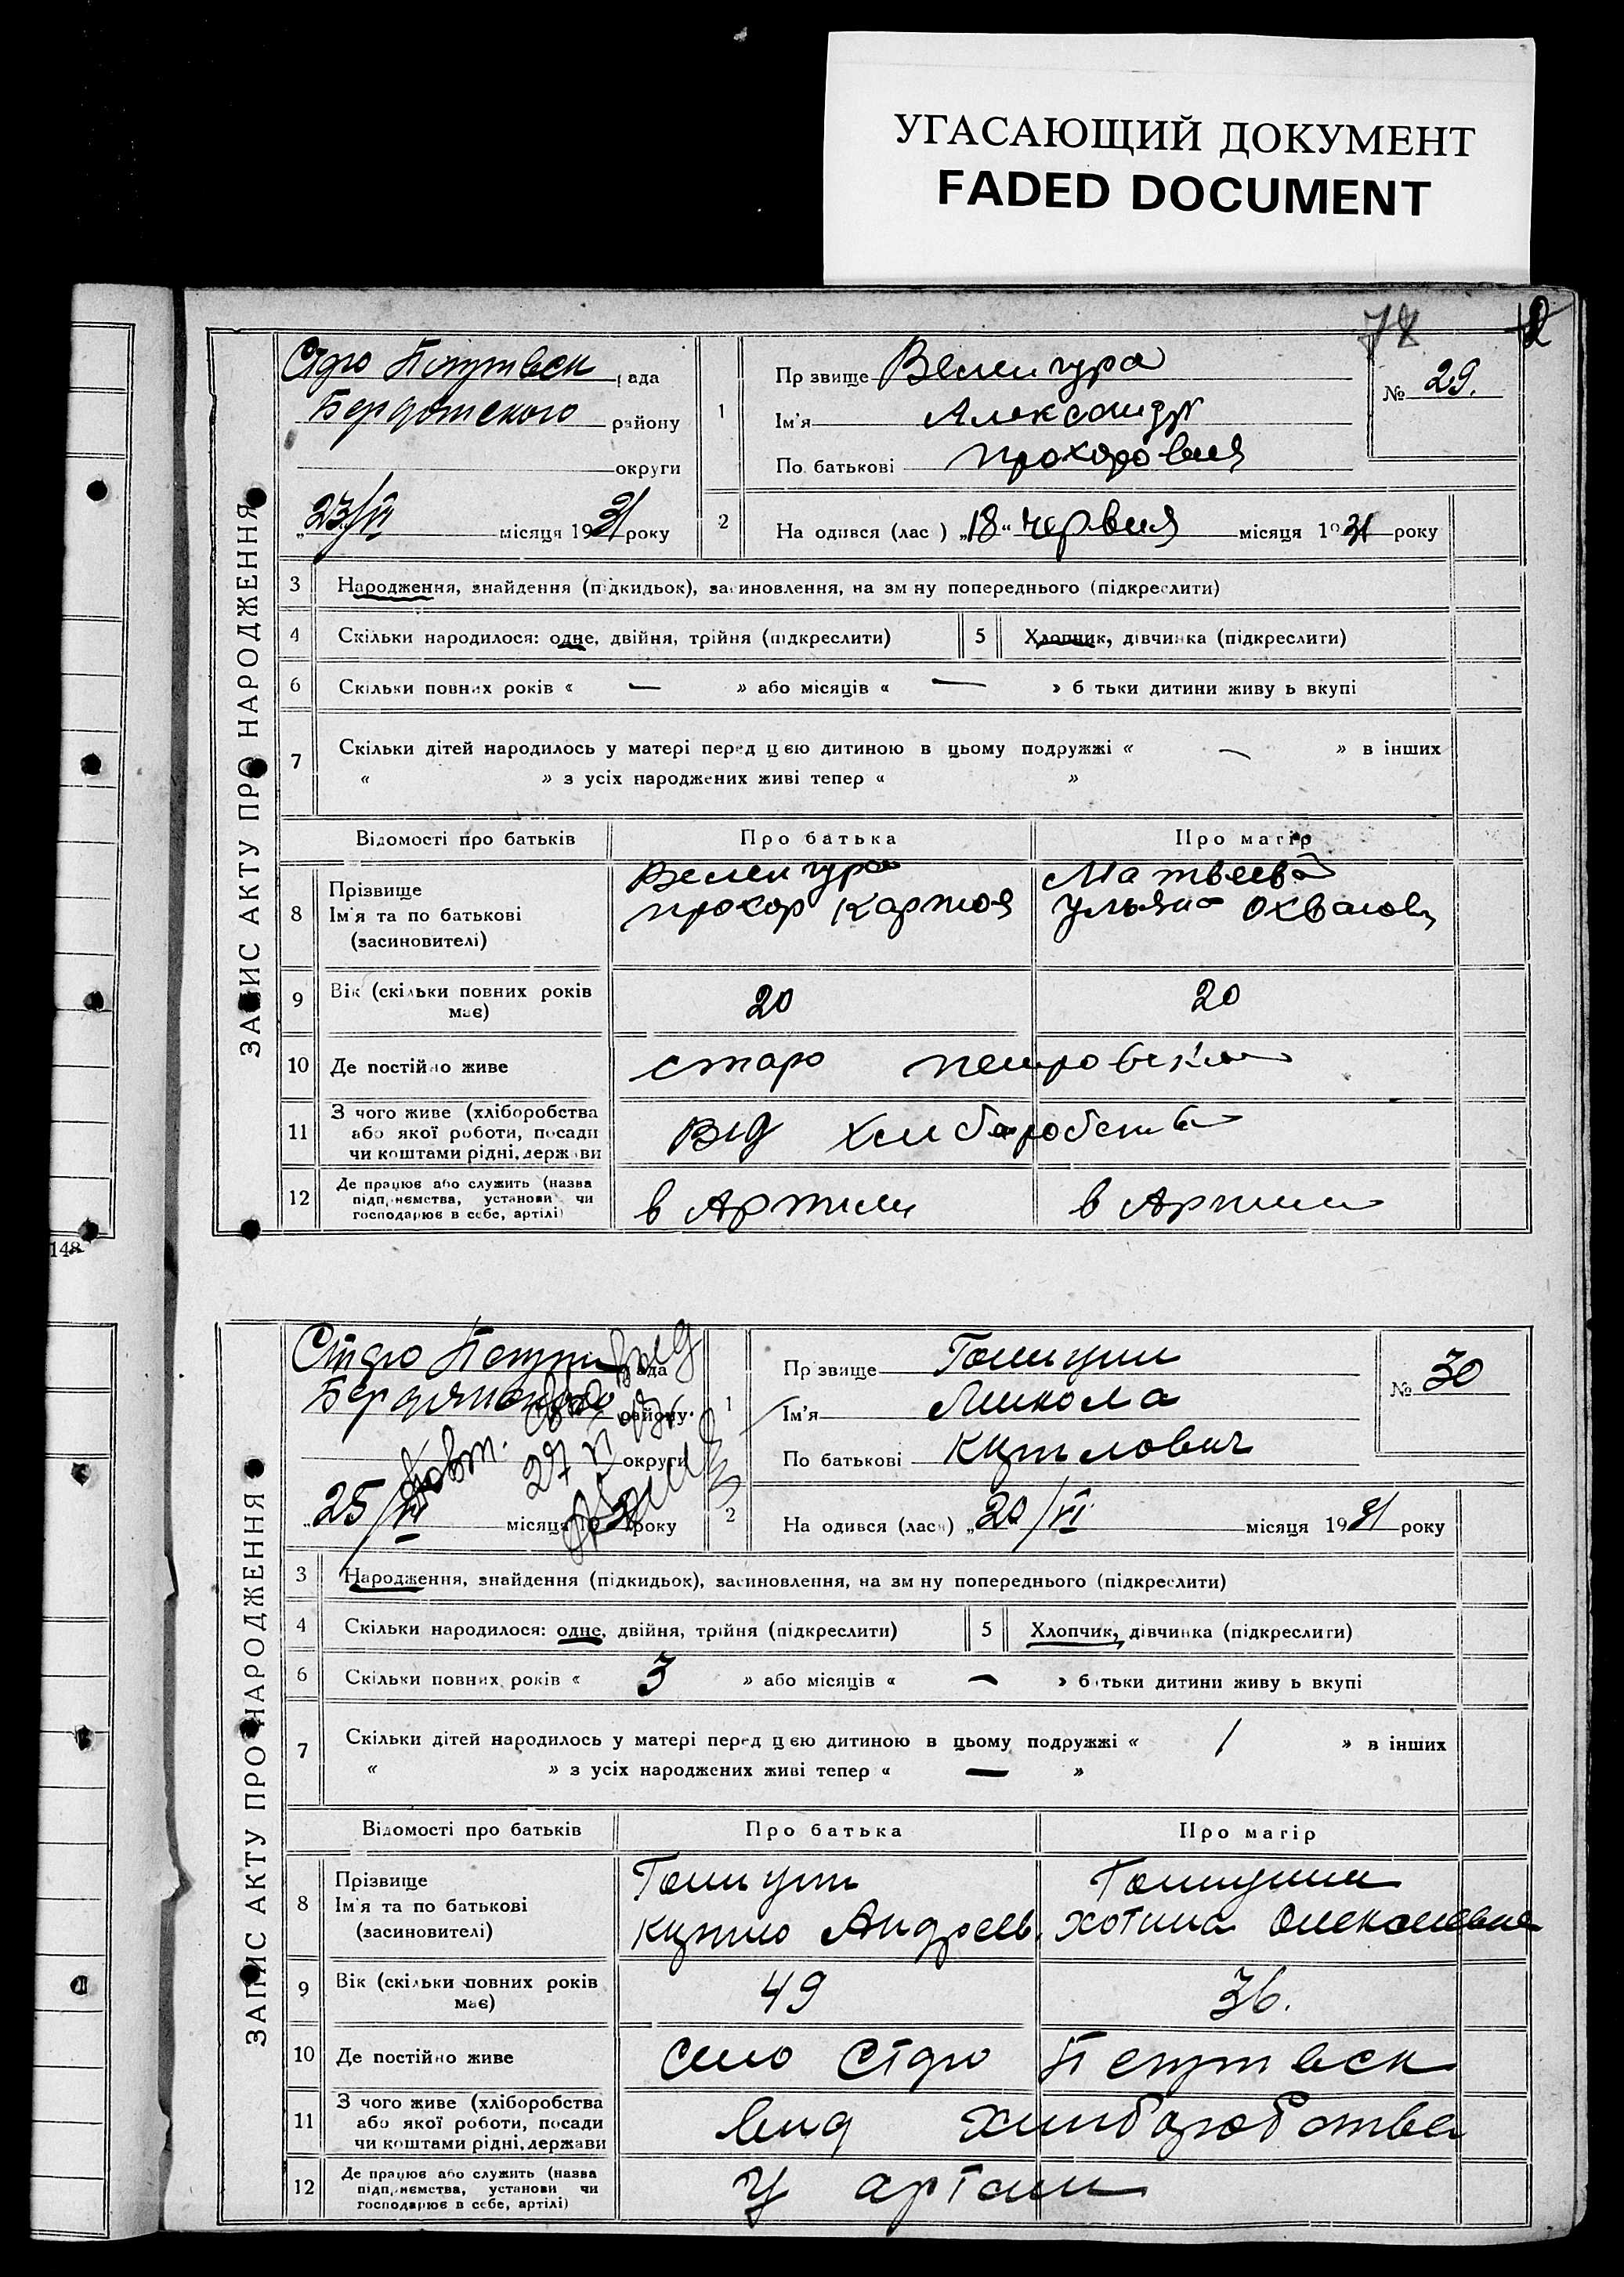 УГАСАЮЩИЙ ДОКУМЕНТ
FADED DOCUMENT
78
148
ЗАПИС АКТУ ПРО НАРОДЖЕННЯ
рада
району
округи
23/VI місяця 1931 року
1
Прзвище Вемигура
Ім'я Александр
По батькові
№ 29.
2 На одився (лас ) „18“ червня місяця 1931 року
3 Народження, знайдення (підкидьок), засиновлення, на зм ну попереднього (підкреслити)
4 Скільки народилося: одне, двійня, трійня (підкреслити)
5 Хлопчик, дівчинка (підкреслити)
6 Скільки повних років « — » або місяців « — » б тьки дитини живу ь вкупі
7 Скільки дітей народилось у матері перед ц єю дитиною в цьому подружжі « — » в інших
« » з усіх народжених живі тепер « »
Відомості про батьків Про батька Про матір
8 Прізвище
Ім'я та по батькові
(засиновителі)
Вемигура
прохор
Матвеева
Ульяна
9 Вік (скільки повних років
має)
20 20
10 Де постійно живе
старо петровськи
11 З чого живе (хліборобства
або якої роботи, посади
чи коштами рідні, держ ви
Від хлиборобства
12 Де працює або служить (назва
підп, нємства, установи чи
господарює в себе, артілі)
в Артили в Артили
ЗАПИС АКТУ ПРО НАРОДЖЕННЯ
рада
району
27 VI
округи
25/VI місяця 1931 року
1
Пр звище
Ім'я Микола
По батькові Кирилович
№ 30
2 На одився (лася) „20/VI місяця 1931 року
3 Народження, знайдення (підкидьок), засиновлення, на зм ну попереднього (підкреслити)
4 Скільки народилося: одне, двійня, трійня (підкреслити)
5 Хлопчик, дівчинка (підкреслити)
6 Скільки повних років « 3 » або місяців « — » б тьки дитини живу ь вкупі
7 Скільки дітей народилось у матері перед ц єю дитиною в цьому подружжі « / » в інших
« » з усіх народжених живі тепер « — »
Відомості про батьків Про батька Про матір
8 Прізвище
Ім'я та по батькові
(засиновителі)
Кирило Андреев.
Хотина
9 Вік (скільки повних років
має)
49 36.
10 Де постійно живе
село Старо
11 З чого живе (хліборобства
або якої роботи, посади
чи коштами рідні, держави
вид хлиборобства
12 Де працює або служить (назва
підп, нємства, установи чи
господарює в себе, артілі)
У артели